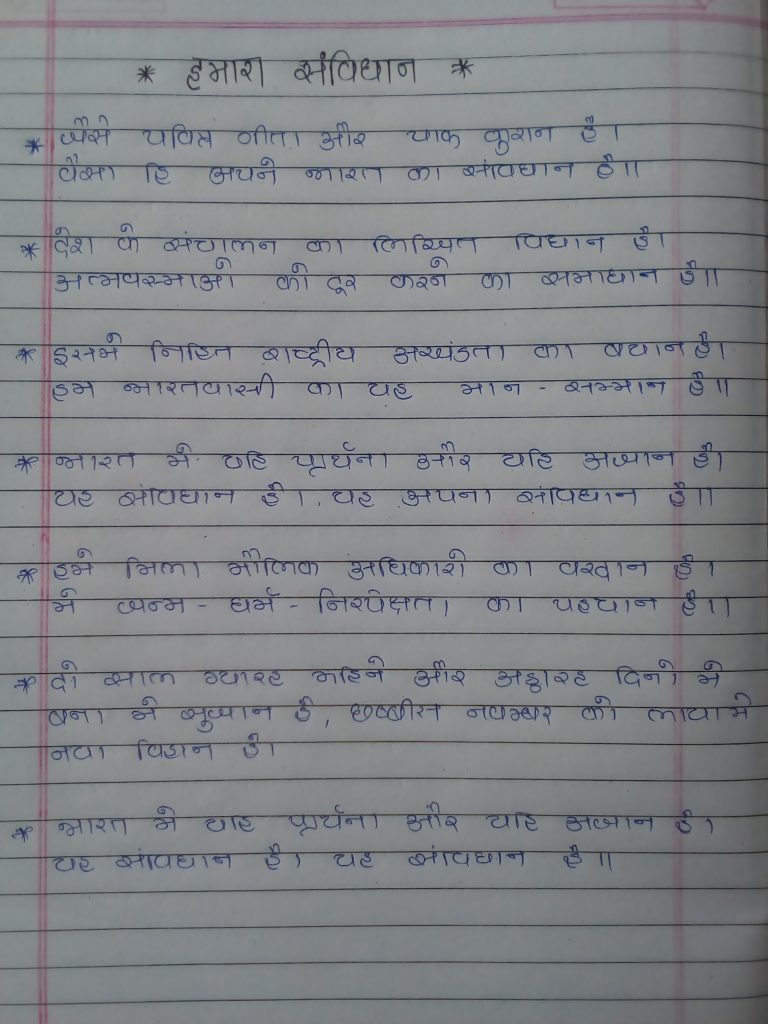 * हमारा संविधान *
* जैसे पवित्र गीता और पाक कुरान है।
वैसा हि अपने भारत का संविधान है॥
* देश के संचालन का लिखित विधान है।
को दूर करने का समाधान है॥
* इसमे निहित राष्ट्रीय अखंडता का बयान है।
हम भारतवासी का यह मान - सम्मान है॥
* भारत मे यहि प्रार्थना और यहि अजान है।
यह संविधान है। यह अपना संविधान है॥
* हमे मिला मौलिक अधिकारो का वरदान है।
मे जन्म - धर्म - निरपेक्षता का पहचान है॥
* दो साल ग्यारह महिने और अठ्ठारह दिनो मे
बना ने सुजान है, छब्बीस नवम्बर को लाया मे
नया विहान है।
* भारत मे यहि प्रार्थना और यहि अजान है।
यह संविधान है। यह संविधान है॥